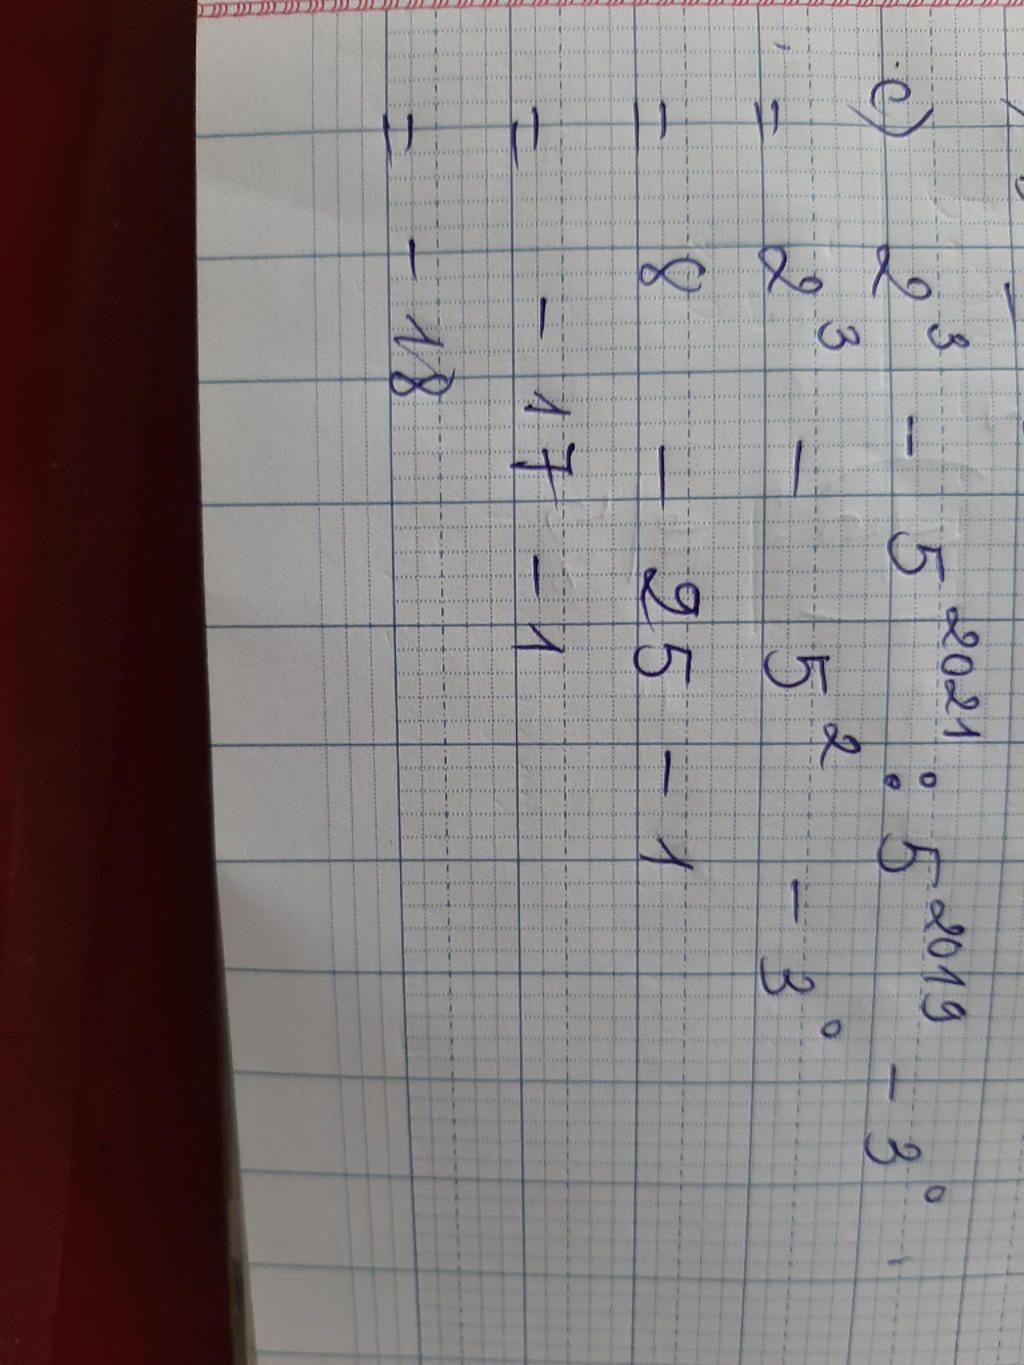 c) 2³ - 5²⁰²¹ : 5²⁰¹⁹ - 3⁰
= 2³ - 5² - 3⁰
= 8 - 25 - 1
= -17 - 1
= -18